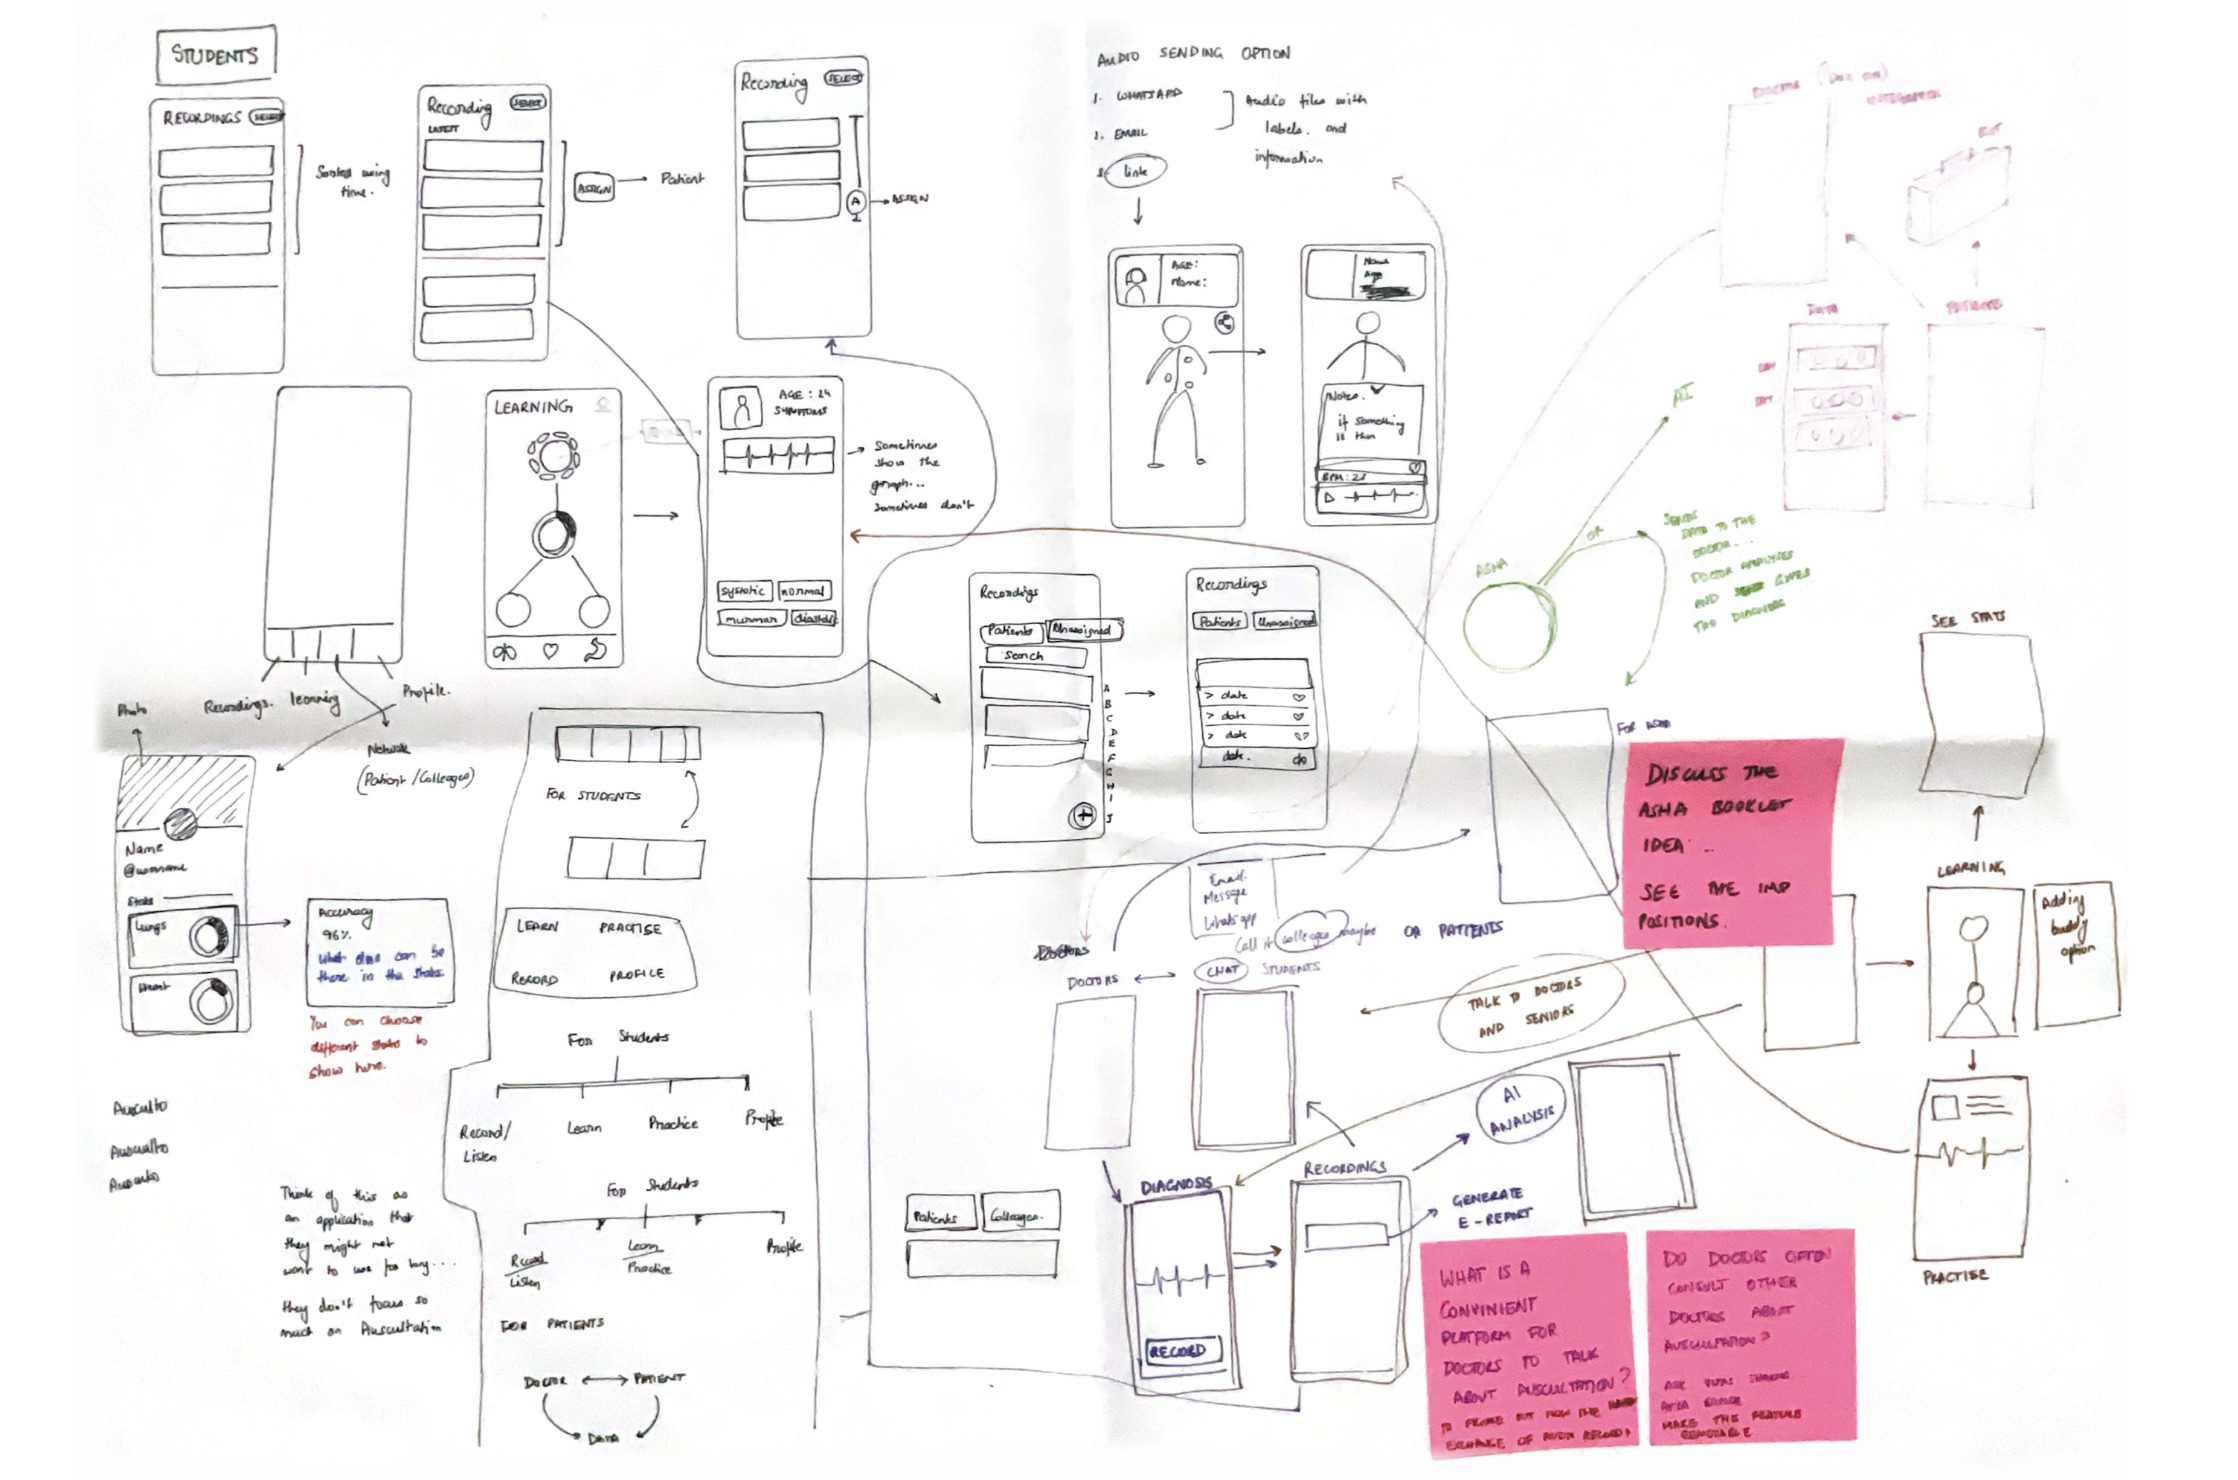 STUDENTS
RECORDINGS
SELECT
Sorted using
time.
Recording
SELECT
LATEST
ASSIGN
Patient
Recording
SELECT
A
ASSIGN
AUDIO SENDING OPTION
1. WHATSAPP
2. EMAIL
link
Audio files with
labels. and
information
AGE:
Name:
Name
Age
Notes.
if something
is then
BPM: 25
DOCTOR
INTEGRATION
BOT
DATA
PATIENT
DAY
AI
OR
ASHA
SENDS
DATA TO THE
DOCTOR...
DOCTOR ANALYSES
AND GIVES
THE DIAGNOSIS
LEARNING
AGE: 24
SYMPTOMS
Sometimes
show the
graph...
Sometimes don't
systolic
normal
murmur
diastolic
Recordings
Patients
Unassigned
Search
A
B
C
D
E
F
G
H
I
J
Recordings
Patients
Unassigned
> date
> date
> date
date.
Recordings.
learning
Profile.
Network
(Patient/Colleagues)
Photo
Name
@username
Stats
Lungs
Heart
Accuracy
96%
what else can be
there in the stats.
You can choose
different stats to
show here.
Ausculto
Ausculto
Ausculto
Think of this as
an application that
they might not
want to use for long....
they don't focus so
much on Auscultation
FOR STUDENTS
LEARN
PRACTISE
RECORD
PROFILE
For Students
Record/
Listen
Learn
Practice
Profile
For Students
Record
Listen
Learn
Practice
Profile
FOR PATIENTS
DOCTOR
PATIENT
DATA
Patients
Colleagues.
Email.
Message
Whatsapp
Call it colleagues maybe
OR PATIENTS
DOCTORS
DOCTORS
CHAT
STUDENTS
TALK TO DOCTORS
AND SENIORS
DIAGNOSIS
RECORD
RECORDINGS
AI
ANALYSIS
GENERATE
E-REPORT
FOR ASHA
DISCUSS THE
ASHA BOOKLET
IDEA ..
SEE THE IMP
POSITIONS.
SEE STATS
LEARNING
Adding
buddy
option
PRACTISE
WHAT IS A
CONVINIENT
PLATFORM FOR
DOCTORS TO TALK
ABOUT AUSCULTATION?
EXCHANGE OF AUDIO RECORD
DO DOCTORS OFTEN
CONSULT OTHER
DOCTORS ABOUT
AUSCULTATION?
MAKE THE FEATURE